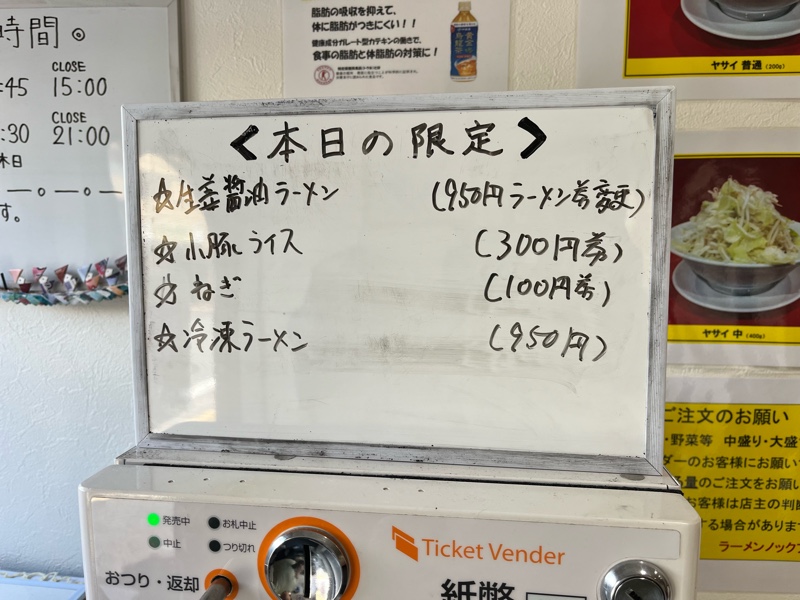 時間。
CLOSE
:45 15:00
CLOSE
:30 21:00
休日
す。
脂肪の吸収を抑えて、
体に脂肪がつきにくい！！
健康成分ガレート型カテキンの働きで、
食事の脂肪と体脂肪の対策に！
<本日の限定>
☆生姜醤油ラーメン (950円ラーメン券変更)
☆小豚ライス (300円券)
☆ねぎ (100円券)
☆冷凍ラーメン (950円)
ヤサイ 普通 (200g)
ヤサイ 中 (400g)
ご注文のお願い
・野菜等 中盛り・大盛
ダーのお客様にお願い
量のご注文をお願い
お客様は店主の判
する場合があります
ラーメンノックア
発売中 お札中止
中止 つり切れ
おつり・返却
Ticket Vender
紙幣